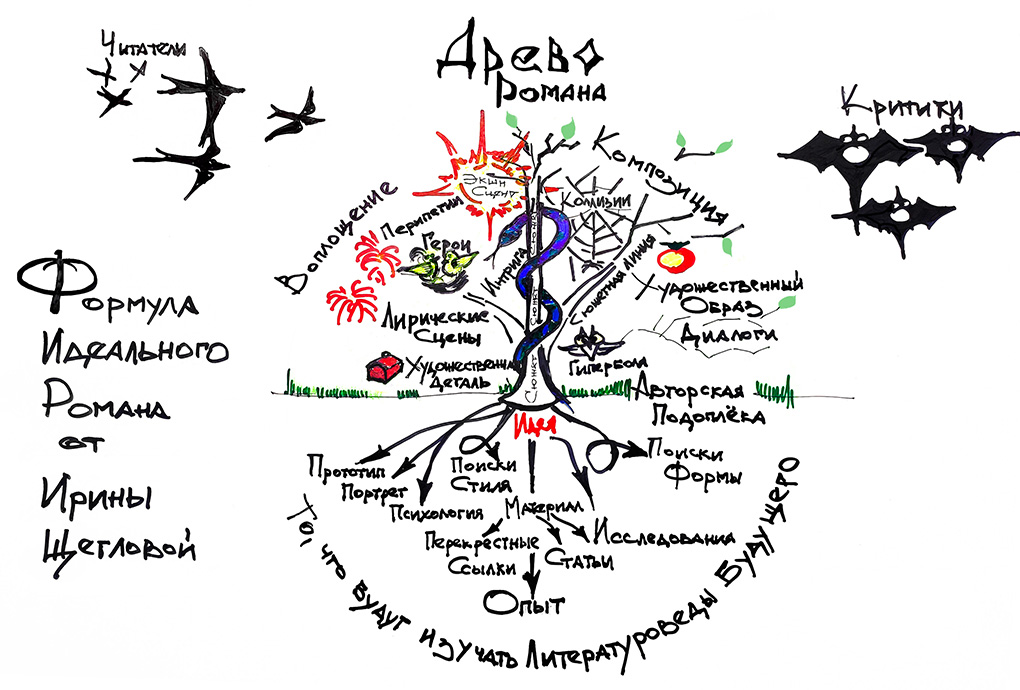 Читатели
Древо
Романа
Критики
Воплощение
Композиция
Экшн
Сцена
Коллизии
Перипетии
Герои
Интрига
Сюжет
Сюжетная линия
Сюжет
Художественный
Образ
Лирические
Сцены
Диалоги
Гипербола
Художественная
Деталь
Сюжет
Авторская
Подоплёка
Формула
Идеального
Романа
от
Ирины
Щегловой
Идея
Прототип
Портрет
Психология
Поиски
Стиля
Материал
Поиски
Формы
Перекрестные
Ссылки
Статьи
Исследования
Опыт
То, что будут изучать Литературоведы Будущего